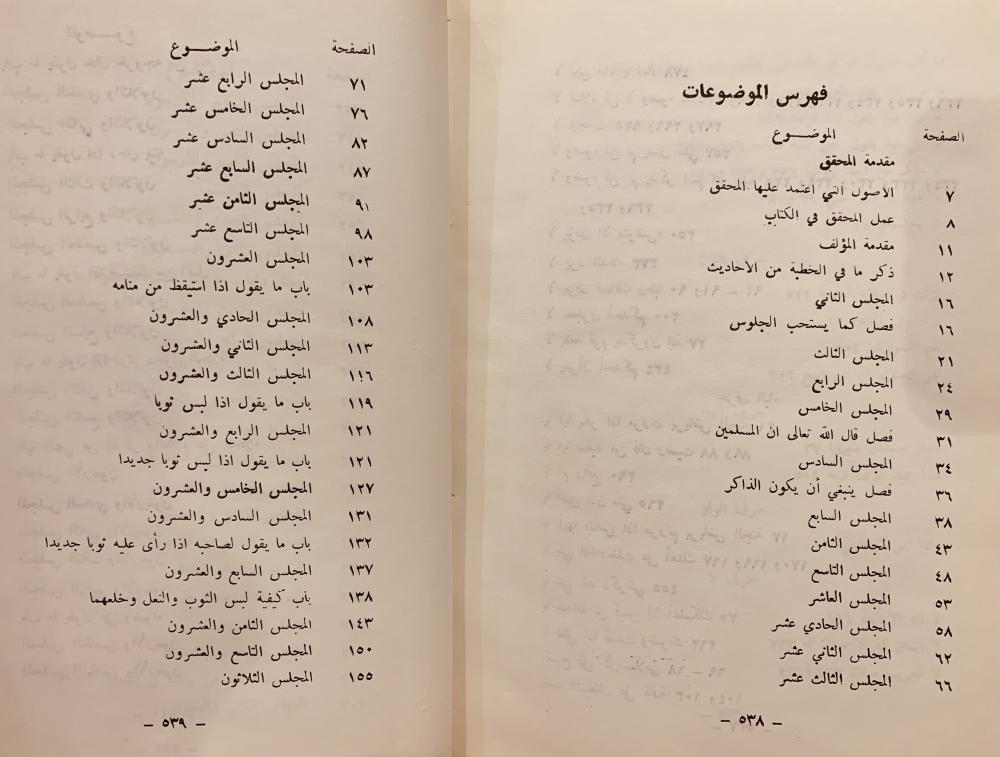 فهرس الموضوعات
الصفحة الموضـــوع
مقدمة المحقق
٧ الأصول التي اعتمد عليها المحقق
٨ عمل المحقق في الكتاب
١١ مقدمة المؤلف
١٢ ذكر ما في الخطبة من الأحاديث
١٦ المجلس الثاني
١٦ فصل كما يستحب الجلوس
٢١ المجلس الثالث
٢٤ المجلس الرابع
٢٩ المجلس الخامس
٣١ فصل قال الله تعالى ان المسلمين
٣٤ المجلس السادس
٣٦ فصل ينبغي أن يكون الذاكر
٣٨ المجلس السابع
٤٣ المجلس الثامن
٤٨ المجلس التاسع
٥٣ المجلس العاشر
٥٨ المجلس الحادي عشر
٦٢ المجلس الثاني عشر
٦٦ المجلس الثالث عشر
– ٥٣٨ –
الصفحة الموضـــوع
٧١ المجلس الرابع عشر
٧٦ المجلس الخامس عشر
٨٢ المجلس السادس عشر
٨٧ المجلس السابع عشر
٩١ المجلس الثامن عشر
٩٨ المجلس التاسع عشر
١٠٣ المجلس العشرون
١٠٣ باب ما يقول اذا استيقظ من منامه
١٠٨ المجلس الحادي والعشرون
١١٣ المجلس الثاني والعشرون
١١٦ المجلس الثالث والعشرون
١١٩ باب ما يقول اذا لبس ثوبا
١٢١ المجلس الرابع والعشرون
١٢١ باب ما يقول اذا لبس ثوبا جديدا
١٢٧ المجلس الخامس والعشرون
١٣١ المجلس السادس والعشرون
١٣٢ باب ما يقول لصاحبه اذا رأى عليه ثوبا جديدا
١٣٧ المجلس السابع والعشرون
١٣٨ باب كيفية لبس الثوب والنعل وخلعهما
١٤٣ المجلس الثامن والعشرون
١٥٠ المجلس التاسع والعشرون
١٥٥ المجلس الثلاثون
– ٥٣٩ –